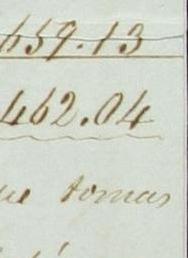 659.13
462.04
ue tomas